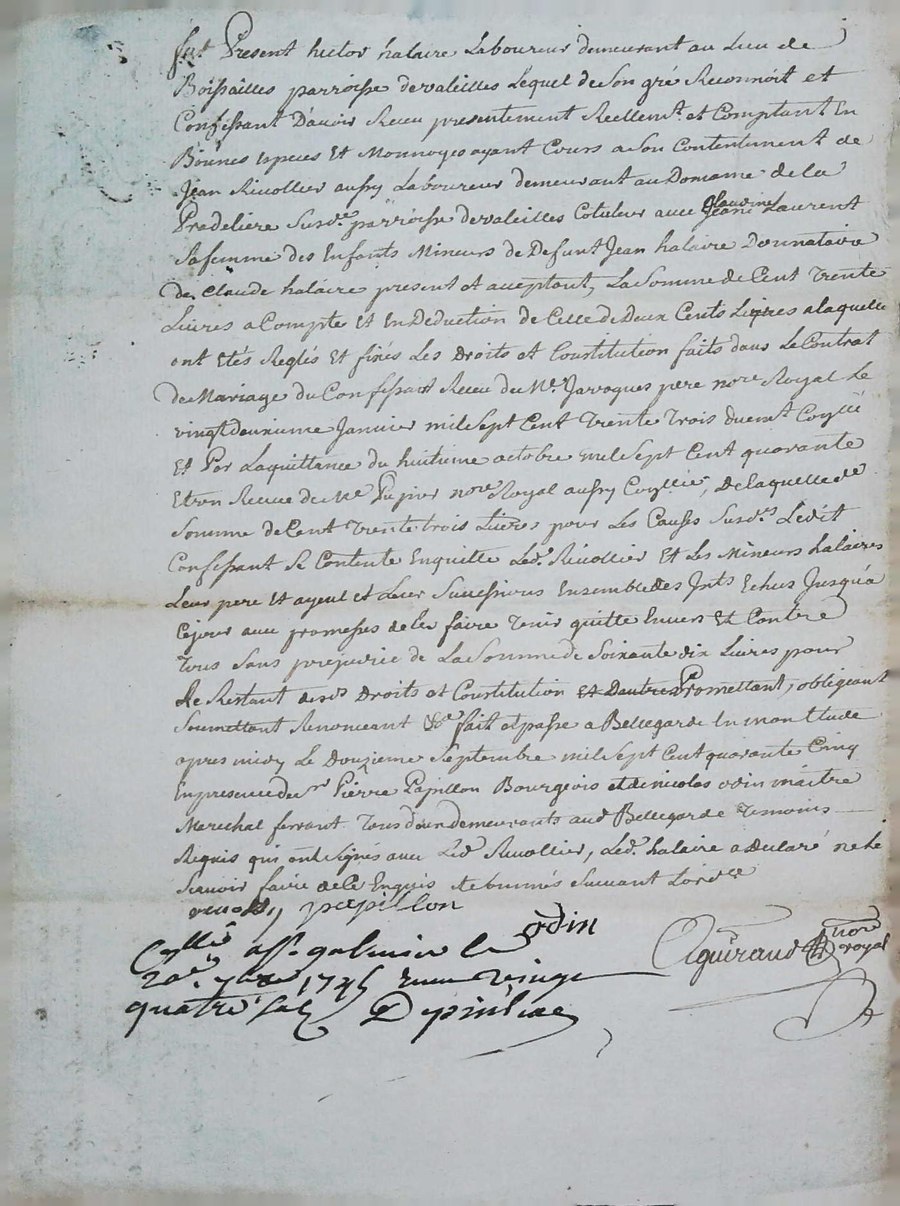 fut Present hector halaire Laboureur demeurant au Lieu de
Boissailles parroisse devaleilles Lequel de Son gré Reconnoit et
Confessant D'avoir Receu presentement Reellemt. et Comptant En
Bonnes Especes Et Monnoyes ayant Cours a Son Contentement de
Jean Rivollier aussy Laboureur demeurant au Domaine de la
Pradeliere Susde. parroisse devaleilles Cotuteur avec glaudine Laurent
Sa femme des Enfants Mineurs de Defunt Jean halaire Donnataire
De Claude halaire present et acceptant, La Somme de Cent Trente
Livres a Compte Et En Deduction de Celle de Deux Cents Livres a laquelle
ont Etés Reglés Et fixés Les Droits et Constitution faits dans Le Contrat
De Mariage du Confessant Receu de Me. Javogues pere nore. Royal le
vingtdeuxieme Janvier mil Sept Cent Trente Trois duemt. Collé
Et Par La quittance du huitieme octobre mil Sept Cent quarante
Et un Receue de Me Pupier nore. Royal aussy , De laquelle de.
Somme de Cent Trente trois Livres pour Les Causes Susdes. Ledit
Confessant Se Contente Enquitte Led. Rivollier Et Les Mineurs halaires
Leur pere Et ayeul et Leur Successions Ensemble des Jnts Echus Jusqu'a
Cejour avec promesses de les faire Tenir quitte Envers Et Contre
Tous Sans prejudice de La Somme de Soixante dix Livres pour
Le Restant desds Droits et Constitution Et Dautres Promettant, obligeant
Soumettant Renonceant &a. fait et passé a Bellegarde En mon Etude
apres midy Le Douzieme Septembre mil Sept Cent quarante Cinq
En presence de Sr Pierre Papillon Bourgeois et de nicolas odin maitre
Marechal ferrant Tous deux demeurants aud Bellegarde Temoins
Requis qui ont Signés avec Led Rivollier, Led. halaire a declaré ne le
Scavoir faire de ce Enquis Suivant Lordce
papillon
odin
Aguiraud nore royal
Collé a St. galmier le
20e. 7bre 1745 receu vingt
quatre Sols